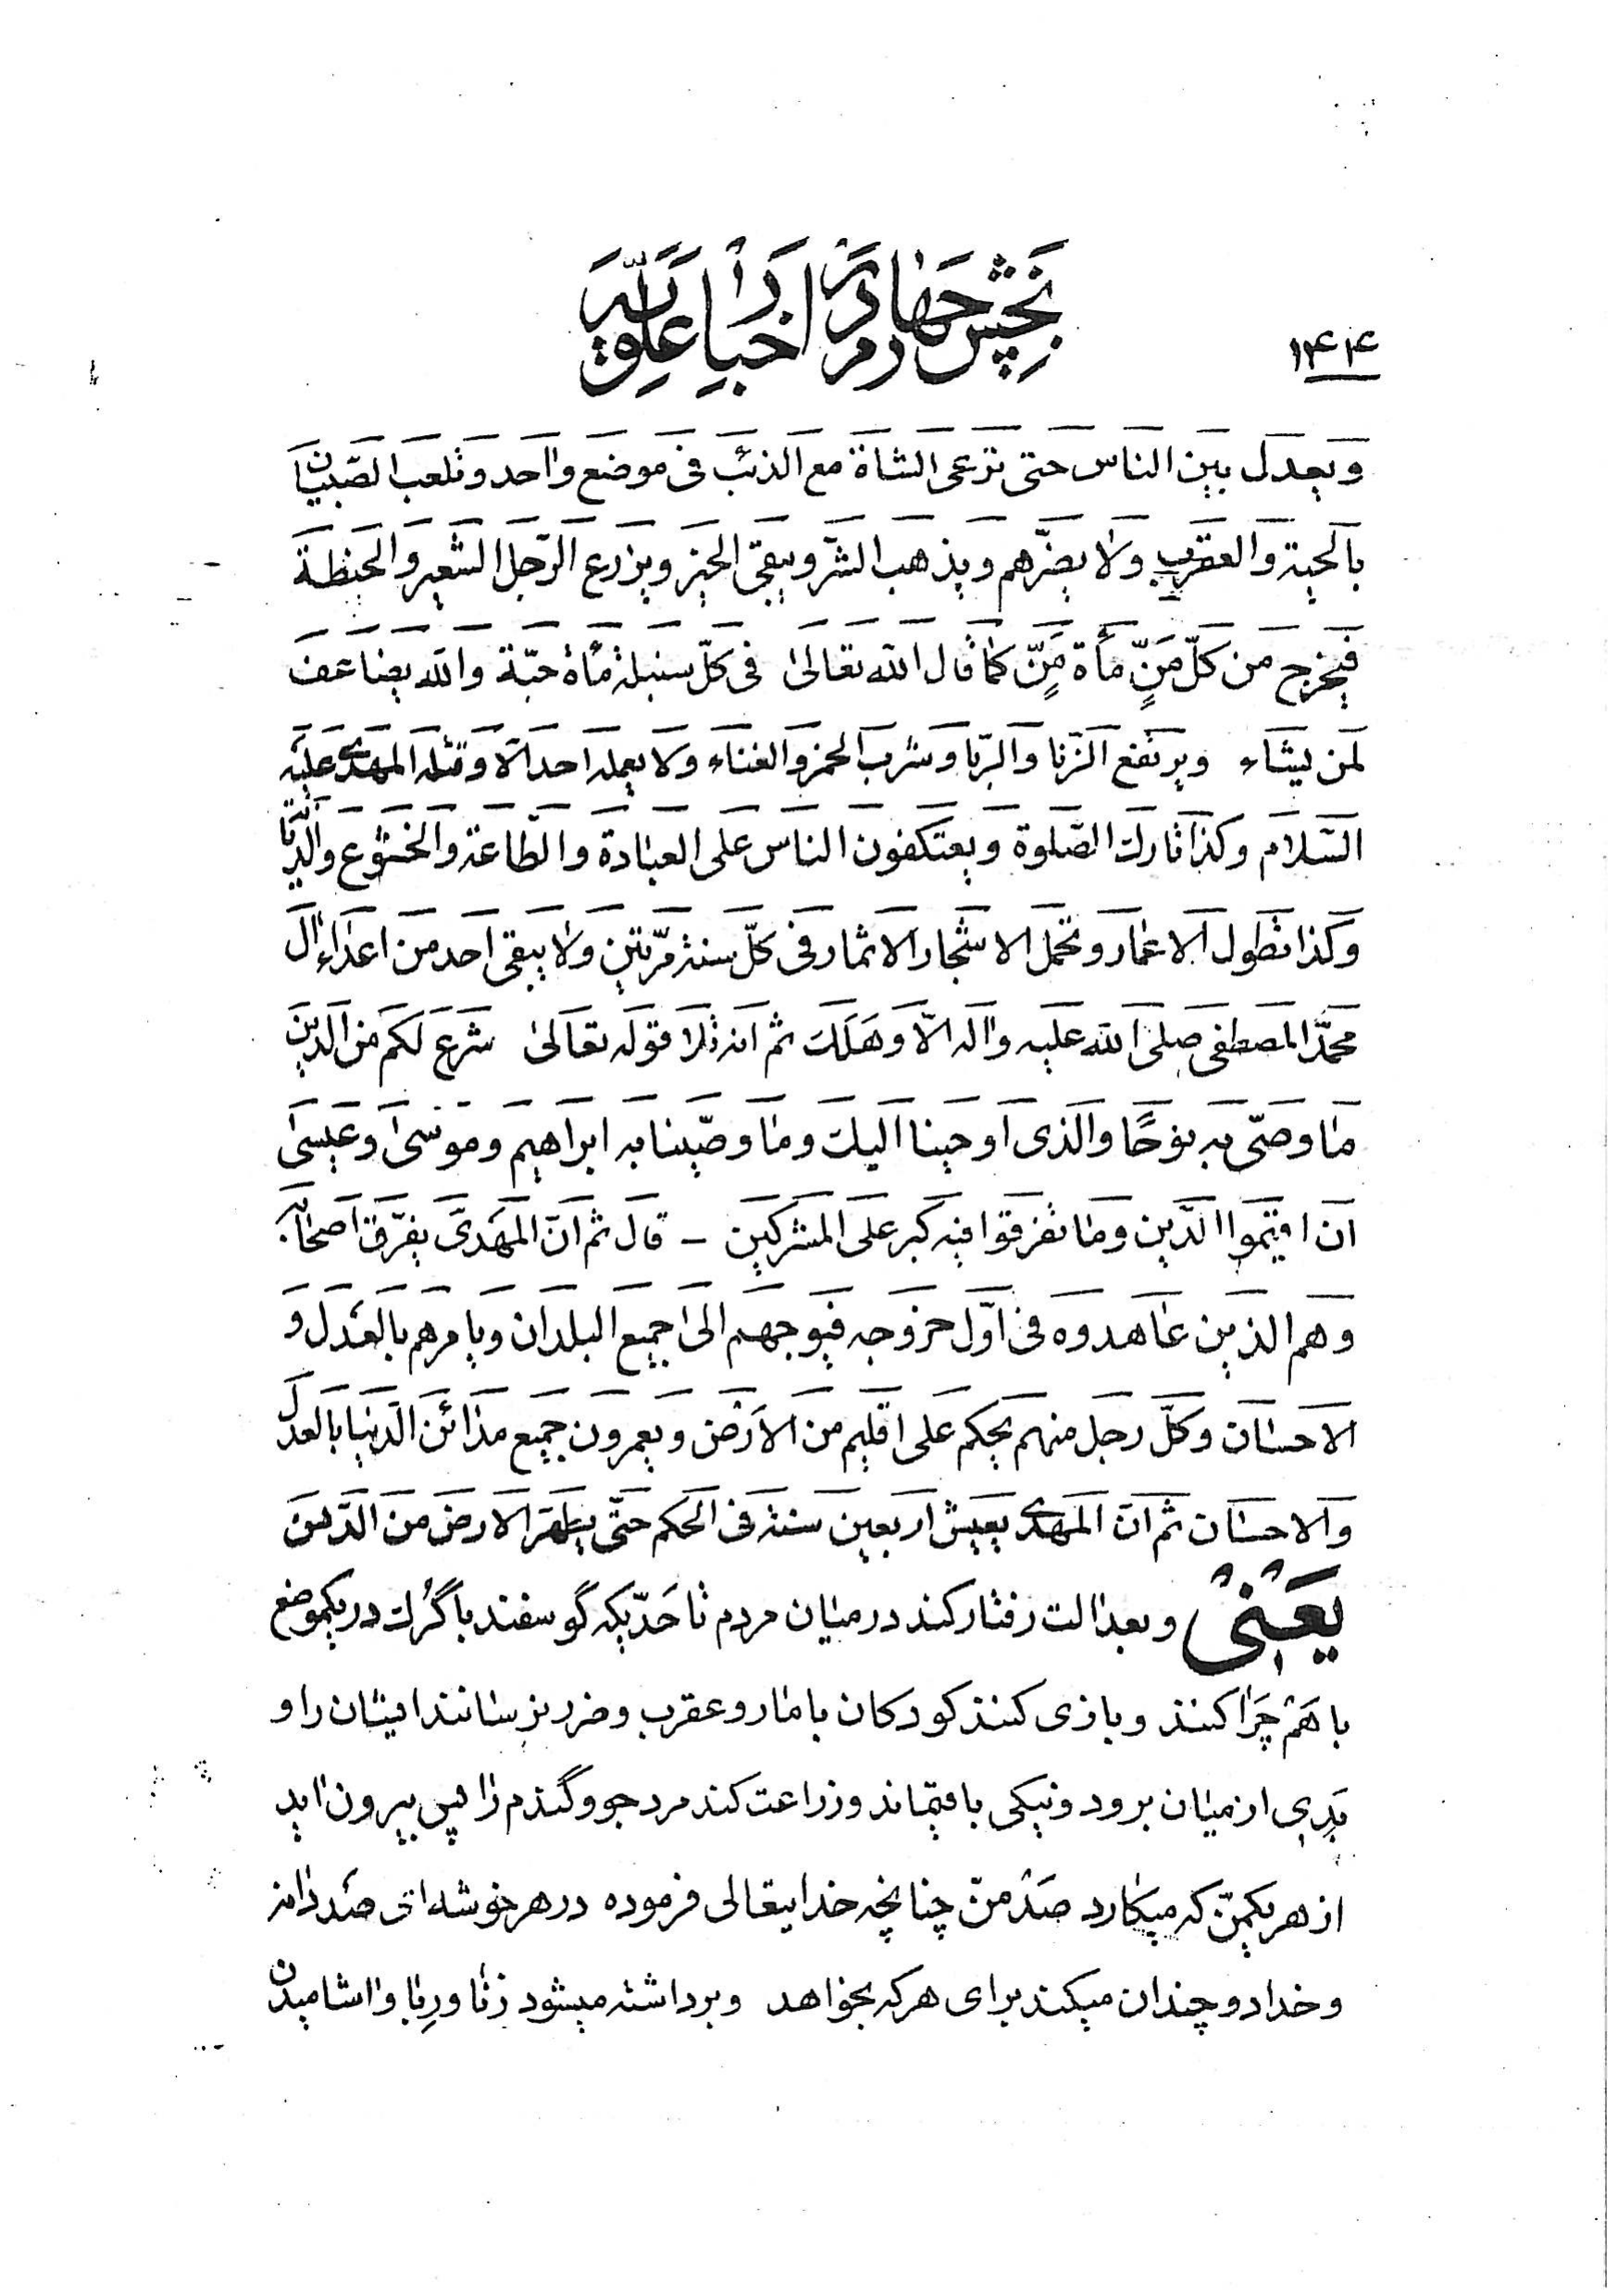 بخش چهارم در اخبار علویه
۱۴۴
و یعدل بین الناس حتی ترعی الشاة مع الذئب فی موضع واحد و تلعب الصّبیان
بالحیة و العقرب ولا یضرّهم و یذهب الشر و یبقی الخیر و یزرع الرّجل الشعیر و الحنطة
فیخرج من کلّ مَنٍّ مأة مَنٍّ کما قال الله تعالی فی کلّ سنبلة مأة حبّة و الله یضاعف
لمن یشاء و یرتفع الزّنا و الرّبا و شرب الخمر و الغناء ولا یعمله احد الّا و قتله المهدی علیه
السّلام و کذا تارك الصّلوة و یعتکفون الناس علی العبادة و الطّاعة و الخشوع و الدّیانة
و کذا تطول الاعمار و تحمل الاشجار الاثمار فی کلّ سنة مرّتین ولا یبقی احد من اعداء آل
محمّد المصطفی صلی الله علیه و اله الّا و هَلَكَ ثم انه تلا قوله تعالی شرع لکم من الدین
ما وصّی به نوحًا والذی اوحینا الیك وما وصّینا به ابراهیم و موسی و عیسی
ان اقیموا الدّین وما تفرقوا فیه کبر علی المشرکین - قال ثم انّ المهدیّ یفرّق اصحابه
و هم الذین عاهدوه فی اوّل خروجه فیوجههم الی جمیع البلدان و یامرهم بالعدل و
الاحسان و کلّ رجل منهم یحکم علی اقلیم من الارض و یعمرون جمیع مدائن الدّنیا بالعدل
والاحسان ثم ان المهدی یعیش اربعین سنة فی الحکم حتّی یطهر الارض من الدّنس
یَعنی و بعدالت رفتار کند در میان مردم تا حَدّیکه گوسفند با گرُك در یکموضع
با هَمْ چَرا کنند و بازی کنند کودکان با مار و عقرب و ضرر نرسانند ایشان را و
بَدِی از میان برود و نیکی باقیماند و زراعت کند مرد جو و گندم را پس بیرون اید
از هر یکمنّ که میکارد صَدْ منّ چنانچه خدایتعالی فرموده در هر خوشه ای صَد دانه
و خدا دو چندان میکند برای هر که بخواهد و برداشته میشود زنا و رِبا و اشامیدن